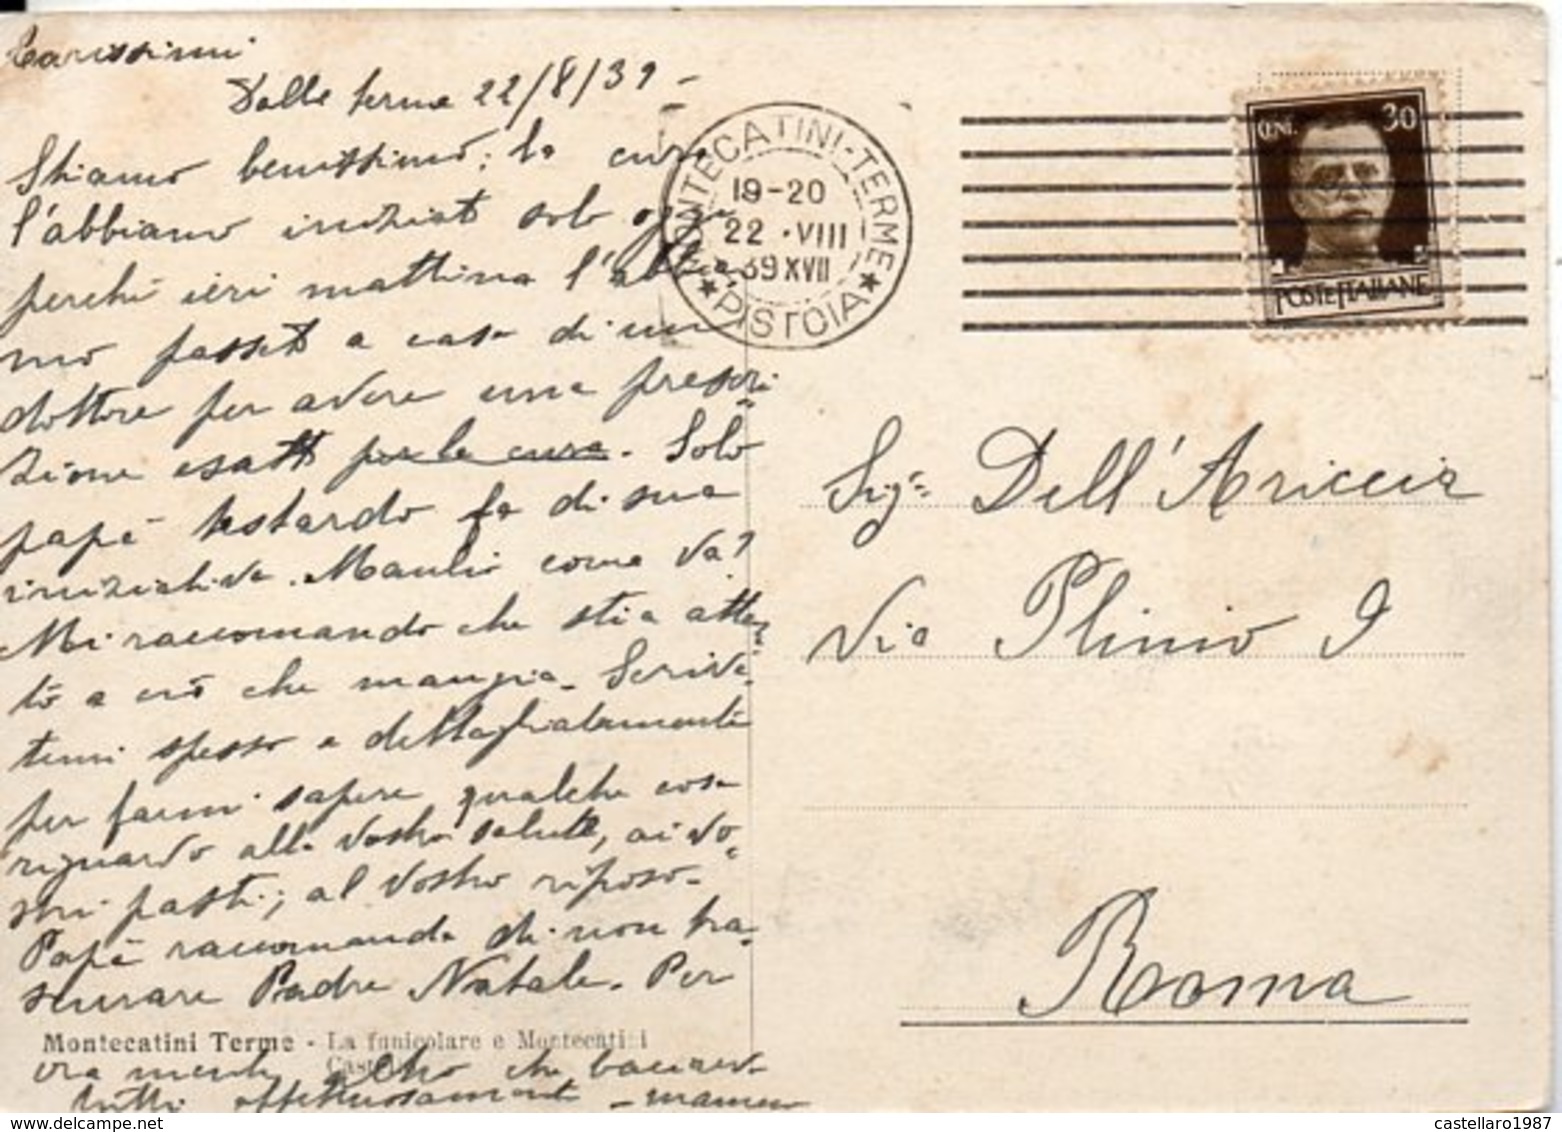 Carissimi
Dalle terme 22/8/39 -
Stiamo benissimo; la cura
l'abbiamo iniziato solo oggi
perché ieri mattina l'abbia-
mo passato a casa di un
dottore per avere una prescri-
zione esatta per la cura. Solo
papà testardo fa di sua
iniziativa. Manlio come va?
Mi raccomando che stia atten-
to a ciò che mangia. Scrive-
temi spesso e dettagliatamente
per farmi sapere qualche cosa
riguardo alla vostra salute, ai vo-
stri pasti; al vostro riposo.
Papà raccomanda di non tra-
scurare Padre Natale. Per
ora niente altro che baciarvi
tutti affettuosamente - mamma
Montecatini Terme - La funicolare e Montecatini
Castello
MONTECATINI-TERME
19-20
22 · VIII
39 XVII
★ PISTOIA ★
CENT. 30
POSTE ITALIANE
Sig.ra Dell'Ariccia
Via Plinio 9
Roma
castellaro1987